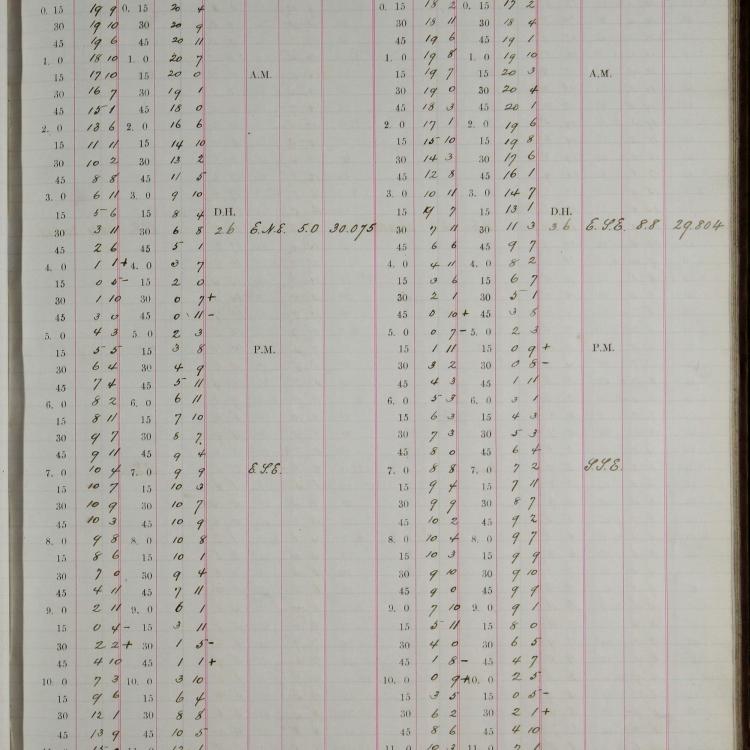 0. 15 19 9 0. 15 20 4 0. 15 18 2 0. 15 17 2
30 19 10 30 20 9 30 18 11 30 18 4
45 19 6 45 20 11 45 19 6 45 19 1
1. 0 18 10 1. 0 20 7 1. 0 19 8 1. 0 19 10
15 17 10 15 20 0 A.M. 15 19 7 15 20 3 A.M.
30 16 7 30 19 1 30 19 0 30 20 4
45 15 1 45 18 0 45 18 3 45 20 1
2. 0 13 6 2. 0 16 6 2. 0 17 1 2. 0 19 6
15 11 11 15 14 10 15 15 10 15 19 8
30 10 2 30 13 2 30 14 3 30 17 6
45 8 8 45 11 5 45 12 8 45 16 1
3. 0 6 11 3. 0 9 10 3. 0 10 11 3. 0 14 7
15 5 6 15 8 4 D.H. 15 9 7 15 13 1 D.H.
30 3 11 30 6 8 26 E.N.E. 5.0 30.075 30 7 11 30 11 3 36 E.S.E. 8.8 29.804
45 2 6 45 5 1 45 6 6 45 9 7
4. 0 1 1+ 4. 0 3 7 4. 0 4 11 4. 0 8 2
15 0 5- 15 2 0 15 3 6 15 6 7
30 1 10 30 0 7+ 30 2 1 30 5 1
45 3 0 45 0 11- 45 0 10+ 45 3 8
5. 0 4 3 5. 0 2 3 5. 0 0 7- 5. 0 2 3
15 5 5 15 3 8 P.M. 15 1 11 15 0 9+ P.M.
30 6 4 30 4 9 30 3 2 30 0 8-
45 7 4 45 5 11 45 4 3 45 1 11
6. 0 8 2 6. 0 6 11 6. 0 5 3 6. 0 3 1
15 8 11 15 7 10 15 6 3 15 4 3
30 9 7 30 8 7 30 7 3 30 5 3
45 9 11 45 9 4 45 8 0 45 6 4
7. 0 10 4 7. 0 9 9 E.S.E. 7. 0 8 8 7. 0 7 2 S.S.E.
15 10 7 15 10 3 15 9 4 15 7 11
30 10 9 30 10 7 30 9 9 30 8 7
45 10 3 45 10 9 45 10 2 45 9 2
8. 0 9 8 8. 0 10 8 8. 0 10 4 8. 0 9 7
15 8 6 15 10 1 15 10 3 15 9 9
30 7 0 30 9 4 30 9 10 30 9 10
45 4 11 45 7 11 45 9 0 45 9 9
9. 0 2 11 9. 0 6 1 9. 0 7 10 9. 0 9 1
15 0 4- 15 3 11 15 5 11 15 8 0
30 2 2+ 30 1 5- 30 4 0 30 6 5
45 4 10 45 1 1+ 45 1 8- 45 4 7
10. 0 7 3 10. 0 3 10 10. 0 0 9+ 10. 0 2 5
15 9 6 15 6 4 15 3 5 15 0 5-
30 12 1 30 8 8 30 6 2 30 2 1+
45 13 9 45 10 5 45 8 6 45 4 10